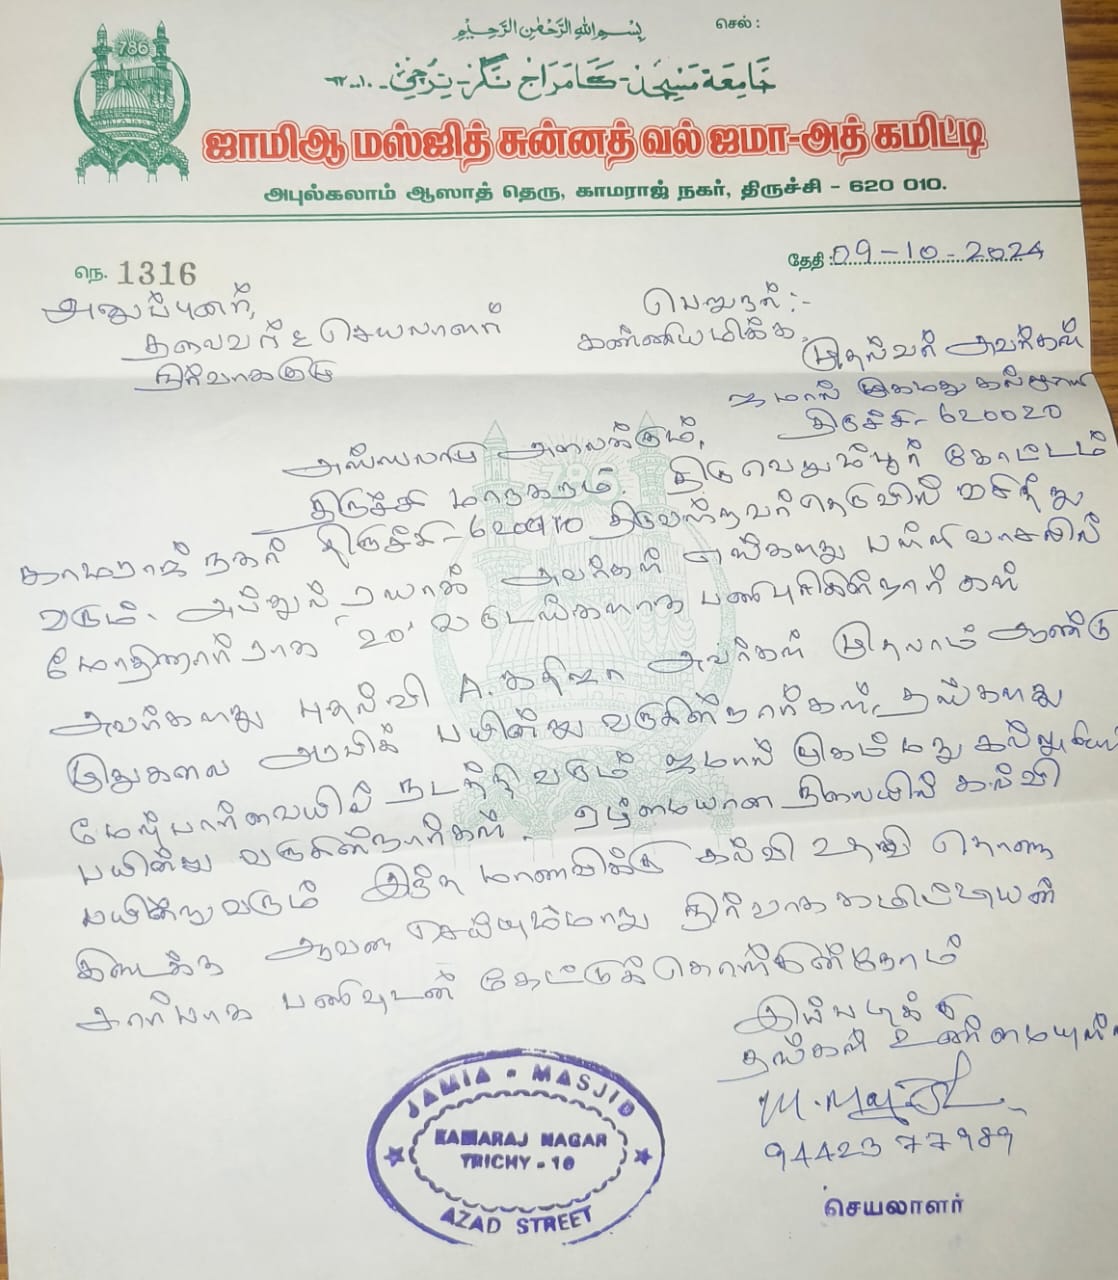 786
بِسْمِ اللهِ الرَّحْمٰنِ الرَّحِيْمِ
செல் :
جَامِعَة مَسْجِدْ - كَامَرَاجْ نَگَرْ - تِرُچِيْ - ٦٢٠٠١٠
ஜாமிஆ மஸ்ஜித் சுன்னத் வல் ஜமா-அத் கமிட்டி
அபுல்கலாம் ஆஸாத் தெரு, காமராஜ் நகர், திருச்சி - 620 010.
நெ. 1316
தேதி : 09-10-2024
அனுப்புனர்,
தலைவர் & செயலாளர்
நிர்வாககுழு
பெறுநர் :-
கண்ணியமிக்க,
முதல்வர் அவர்கள்
ஜமால் முகமது கல்லூரி
திருச்சி - 620020
அஸ்ஸலாமு அலைக்கும்,
திருச்சி மாநகரம். திருவெறும்பூர் கோட்டம்
காமராஜ் நகர் திருச்சி-620010 திருவள்ளுவர் தெருவில் வசித்து
வரும். அப்துல் ரயாக் அவர்கள் எங்களது பள்ளிவாசலில்
மோதினாராக '20' வருடங்களாக பணிபுரிகின்றார்கள்
அவர்களது புதல்வி A. கதிஜா அவர்கள் முதலாம் ஆண்டு
முதுகலை அரபிக் பயின்று வருகின்றார்கள், தங்களது
மேற்பார்வையில் நடத்தி வரும் ஜமால் முகம்மது கல்லூரியில்
பயின்று வருகின்றார்கள். ஏழ்மையான நிலையில் கல்வி
பயின்றுவரும் இந்த மாணவிக்கு கல்வி உதவி தொகை
கிடைக்க ஆவன செய்யும்மாறு நிர்வாக கமிட்டியின்
சார்பாக பணிவுடன் கேட்டுக் கொள்கின்றோம்
இப்படிக்கு
தங்கள் உண்மையுள்ள
94423 77989
செயலாளர்
JAMIA - MASJID
KAMARAJ NAGAR
TRICHY - 10
AZAD STREET